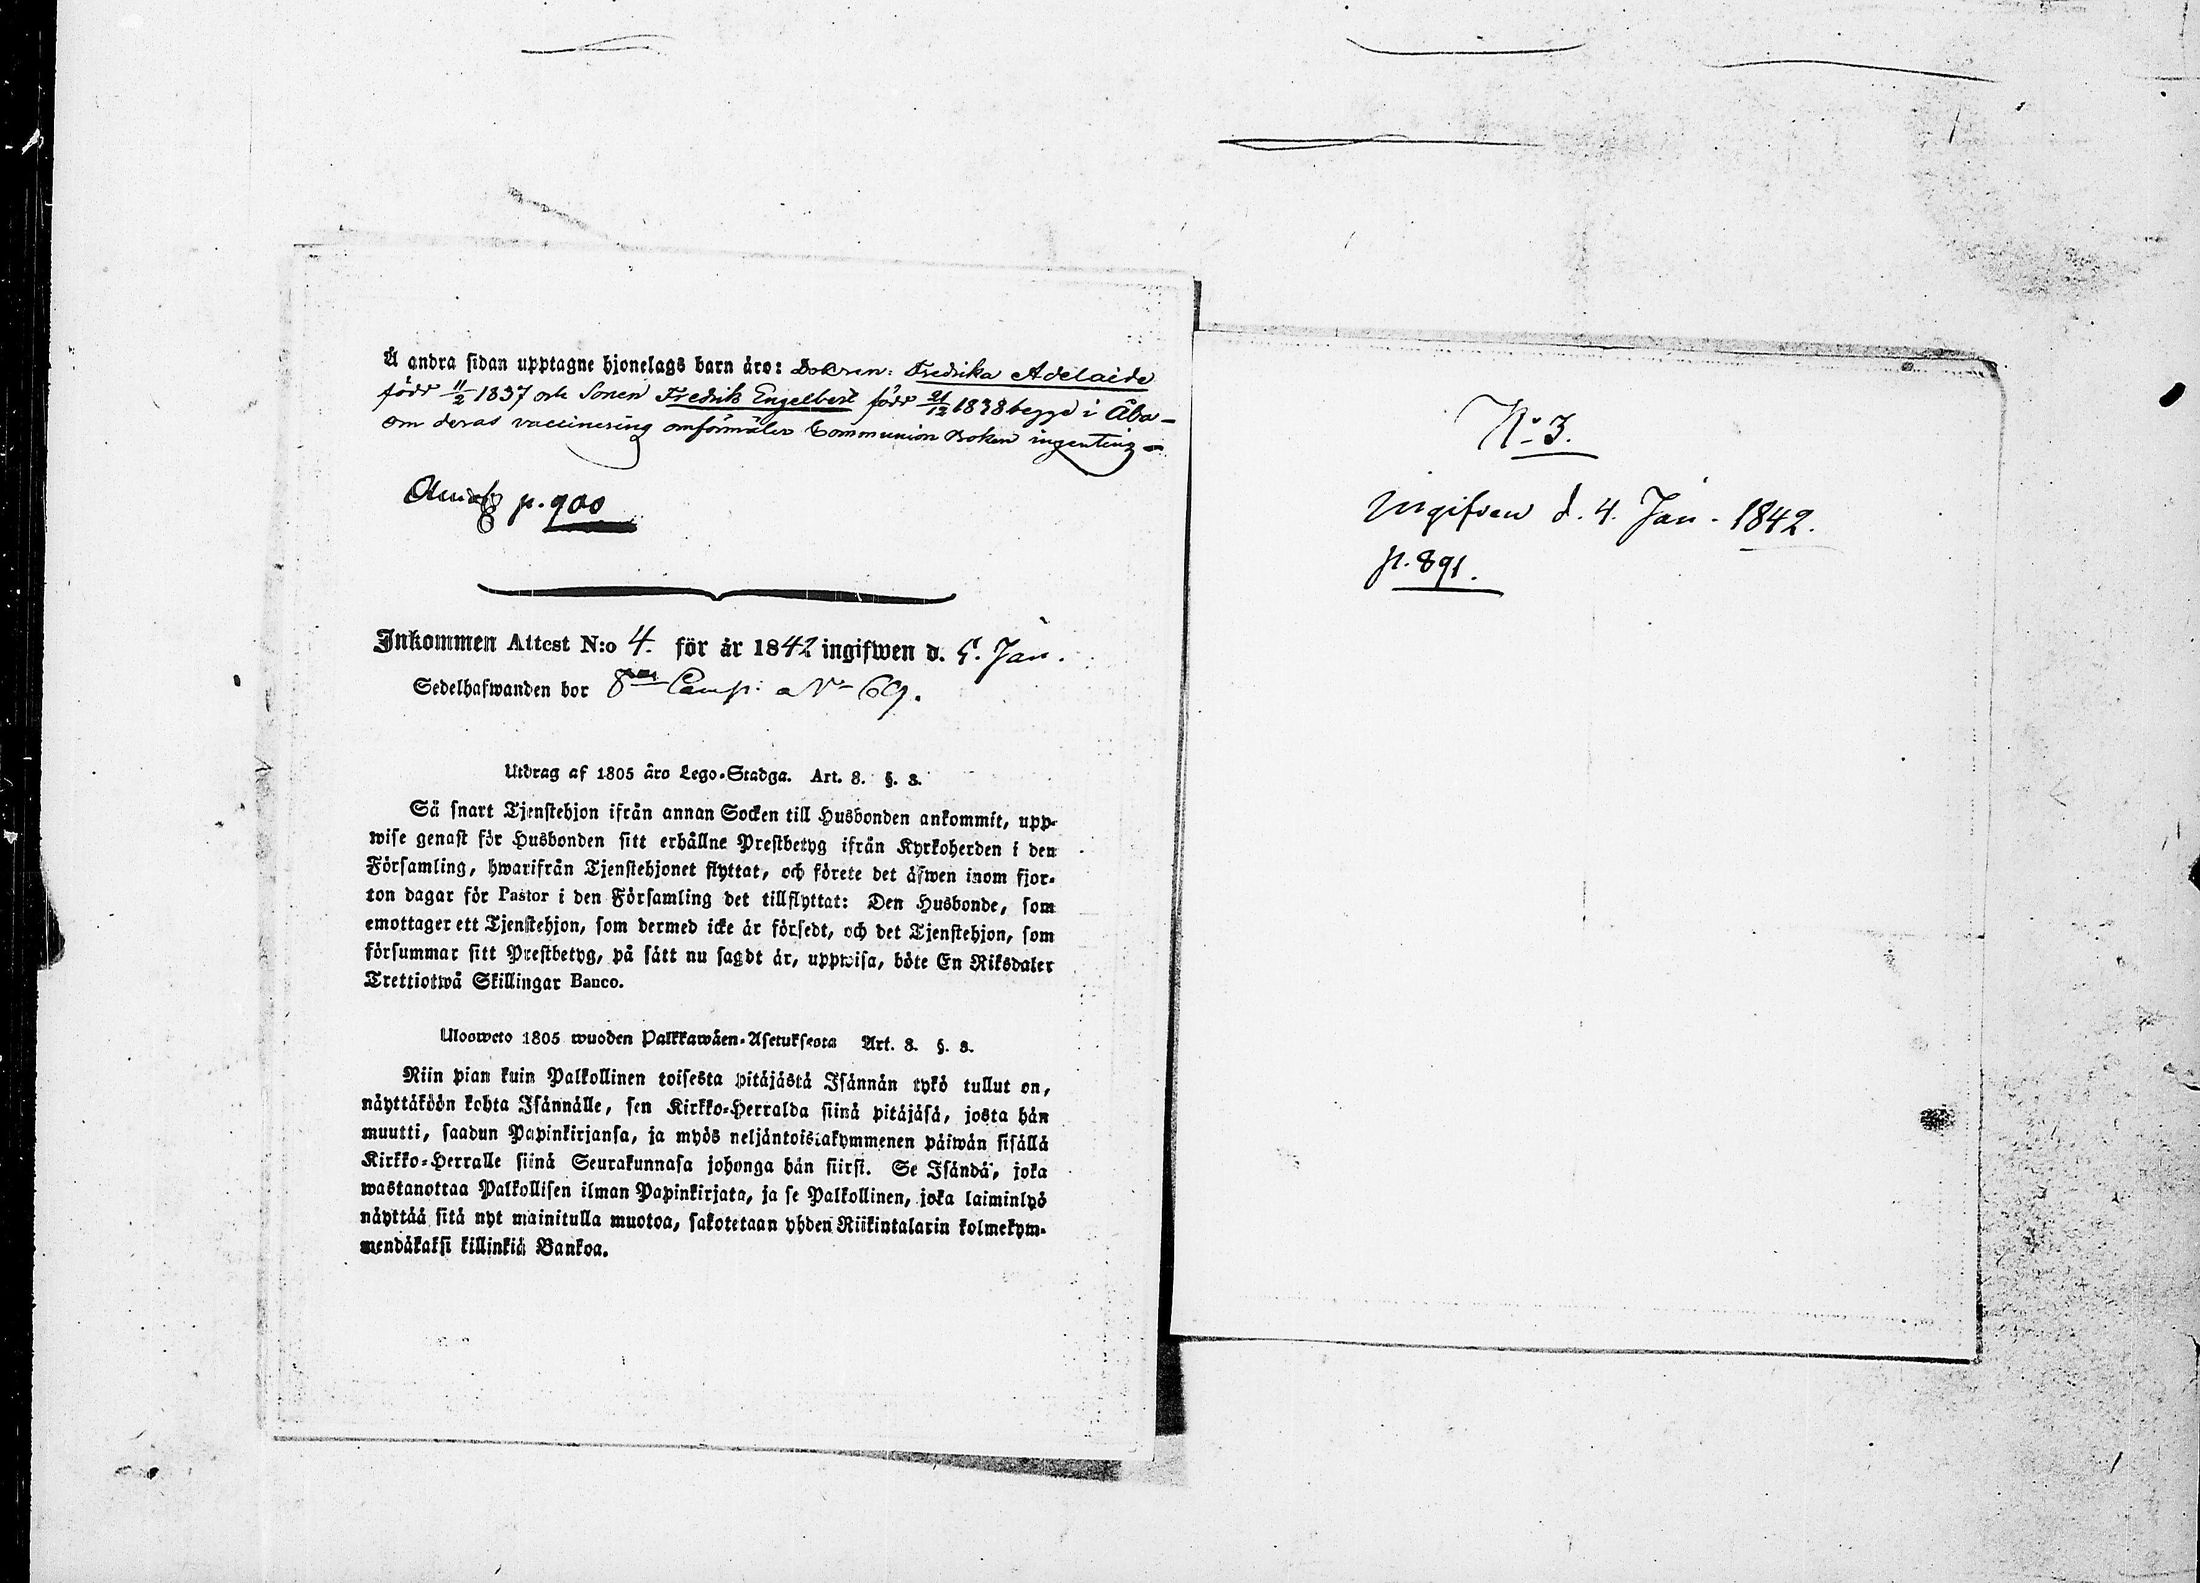 Å andra sidan upptagne hjonelags barn äro: Dottren: Fredrika Adelaide
född 11/2 1837 och Sonen Fredrik Engelbert född 21/12 1838 begge i Åbo –
om deras vaccinering omförmäler Communion Boken ingenting –
p. 900
Inkommen Attest N:o 4. för år 1842 ingifwen d. 5. Jan.
Sedelhafwanden bor 8de Camp: a No 69.
Utdrag af 1805 års Lego-Stadga. Art. 8. §. 8.
Så snart Tjenstehjon ifrån annan Socken till Husbonden ankommit, upp-
wise genast för Husbonden sitt erhållne Prestbetyg ifrån Kyrkoherden i den
Församling, hwarifrån Tjenstehjonet flyttat, och förete det äfwen inom fjor-
ton dagar för Pastor i den Församling det tillflyttat: Den Husbonde, som
emottager ett Tjenstehjon, som dermed icke är försedt, och det Tjenstehjon, som
försummar sitt Prestbetyg, på sätt nu sagdt är, uppwisa, böte En Riksdaler
Trettiotwå Skillingar Banco.
Ulosweto 1805 wuoden Palkkawäen-Asetuksesta Art. 8. §. 8.
Niin pian kuin Palkollinen toisesta pitäjästä Isännän tykö tullut on,
näyttäköön kohta Isännälle, sen Kirkko-Herralda siinä pitäjäsä, josta hän
muutti, saadun Papinkirjansa, ja myös neljäntoistakymmenen päiwän sisällä
Kirkko-Herralle siinä Seurakunnasa johonga hän siirsi. Se Isändä, joka
wastanottaa Palkollisen ilman Papinkirjata, ja se Palkollinen, joka laiminlyö
näyttää sitä nyt mainitulla muotoa, sakotetaan yhden Riikintalarin kolmekym-
mendäkaksi killinkiä Bankoa.
No 3.
Ingifven d. 4. Jan. 1842.
p. 891.